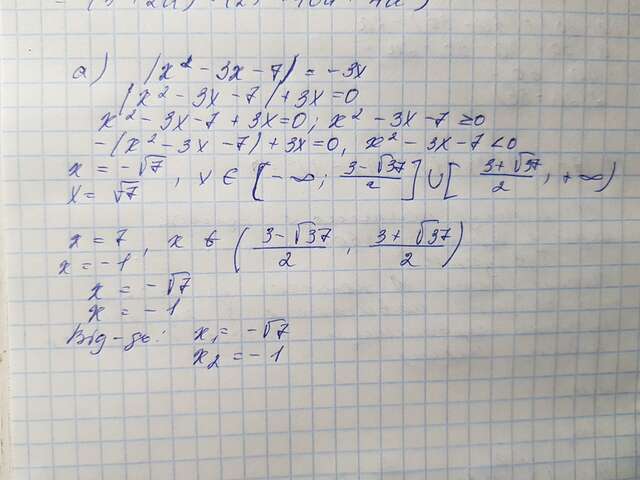 а) |x² - 3x - 7| = -3x
|x² - 3x - 7| + 3x = 0
x² - 3x - 7 + 3x = 0; x² - 3x - 7 ≥ 0
-(x² - 3x - 7) + 3x = 0, x² - 3x - 7 < 0
x = -√7
x = √7 , x ∈ [-∞; (3-√37)/2] ∪ [(3+√37)/2, +∞)
x = 7, x ∈ ((3-√37)/2, (3+√37)/2)
x = -1
x = -√7
x = -1
Від-дь: x₁ = -√7
x₂ = -1